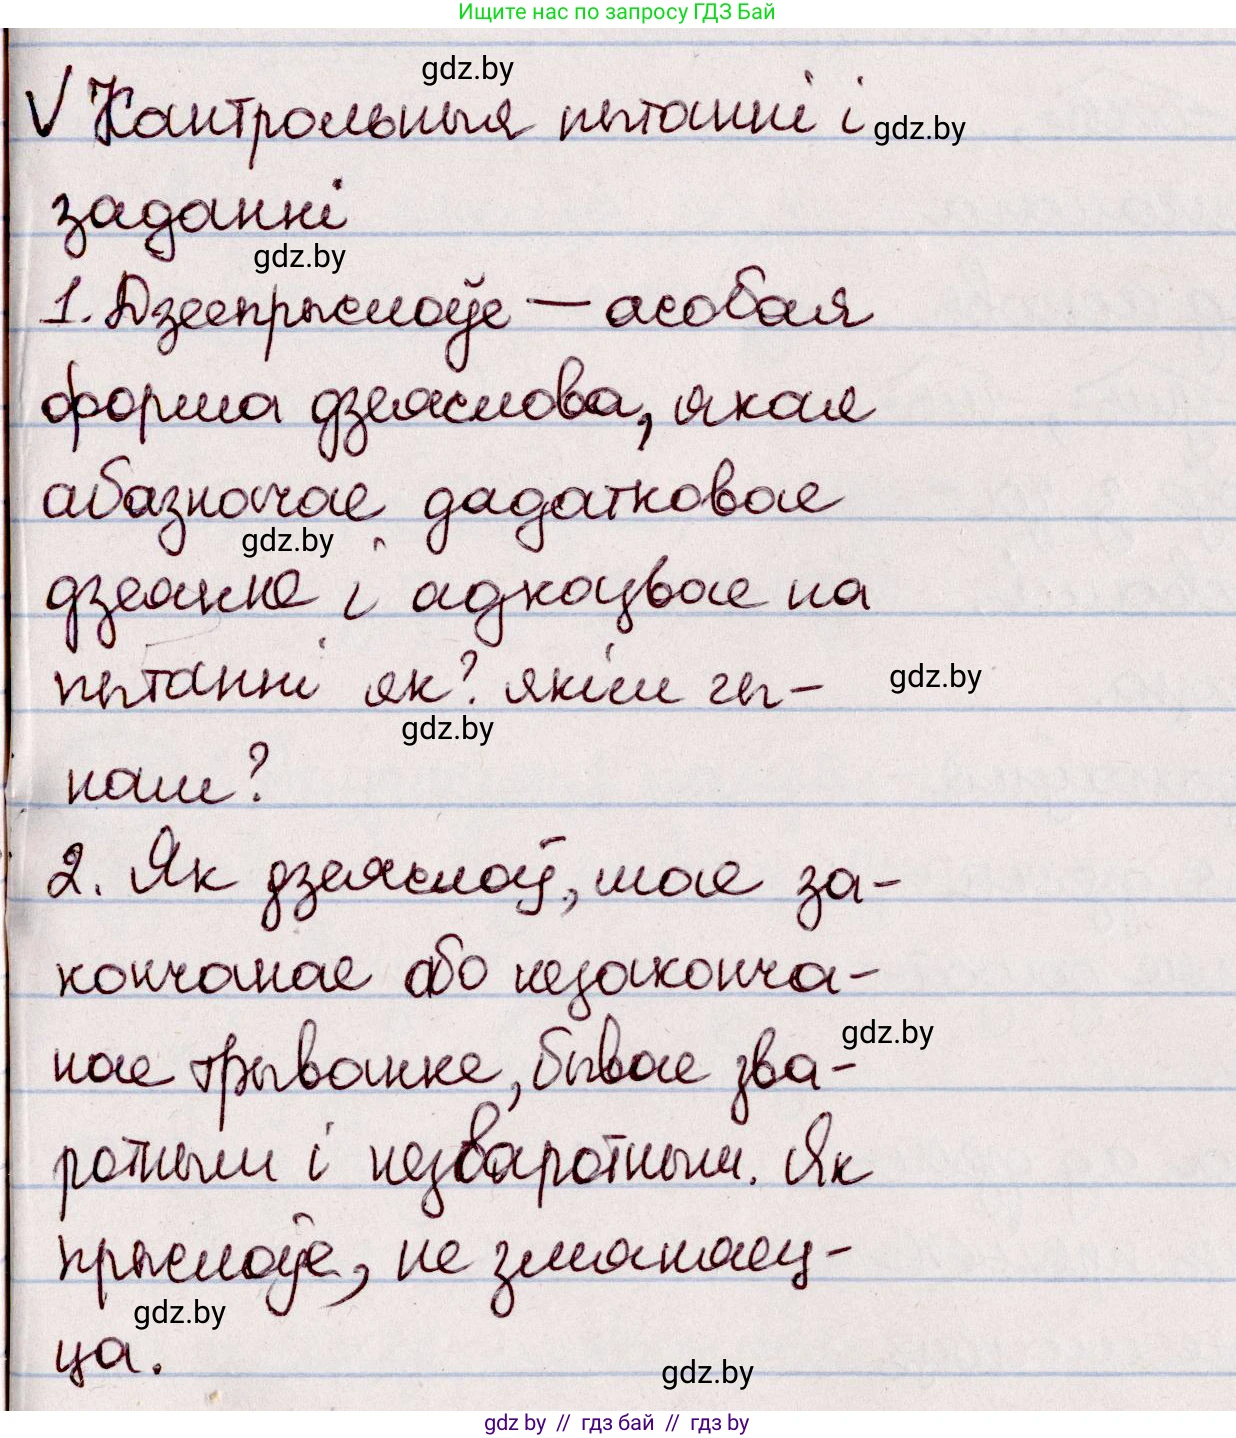 Ищите нас по запросу ГДЗ Бай
gdz.by
√ Кантрольныя пытанні і
gdz.by
заданні
gdz.by
1. Дзеепрыслоўе — асобая
форма дзеяслова, якая
абазначае дадатковае
gdz.by
дзеянне і адказвае на
пытанні як? якім чы-
gdz.by
gdz.by
нам?
2. Як дзеяслоў, мае за-
кончанае або незаконча-
gdz.by
нае трыванне, бывае зва-
ротным і незваротным. Як
прыслоўе, не змяняец-
gdz.by
ца.
gdz.by
gdz by // гдз бай // гдз by